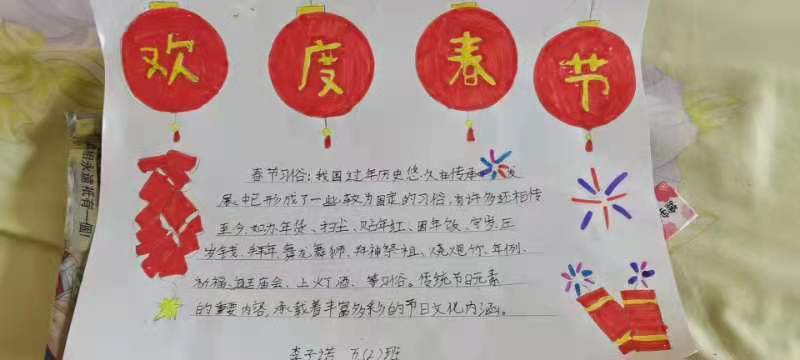 欢度春节
春节习俗：我国过年历史悠久在传承 发
展中已形成了一些较为固定的习俗，有许多还相传
至今，如办年货、扫尘、贴年红、团年饭、守岁、压
岁钱、拜年、舞龙舞狮、拜神祭祖、烧爆竹、年例、
祈福、逛庙会、上灯酒、等习俗。传统节日元素
的重要内容，承载着丰富多彩的节日文化内涵。
李子 (2)班
有一